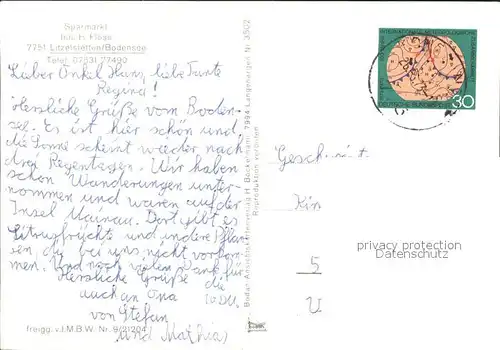 Sparmarkt
Inh. H. Flöge
7751 Litzelstetten/Bodensee
Telef. 07531 77490
Lieber Onkel Hans, liebe Tante
Regina!
Herzliche Grüße vom Boden-
see. Es ist hier schön und
die Sonne scheint wieder nach
drei Regentagen. Wir haben
schon Wanderungen unter-
nommen und waren auf der
Insel Mainau. Dort gibt es
Zitrusfrüchte und andere Pflan-
zen, die bei uns nicht vorkom-
men. Und noch vielen Dank für
Herzliche Grüße die
auch an Oma 10 DM.
von Stefan
und Mathias
freigg. v.I.M.B.W. Nr. 9/21204
Bodan-Ansichtskartenverlag H. Bockelmann, 7994 Langenargen Nr. 3502
Reproduktion verboten
DEUTSCHE BUNDESPOST
30
Geschw.
5
privacy protection
watermark